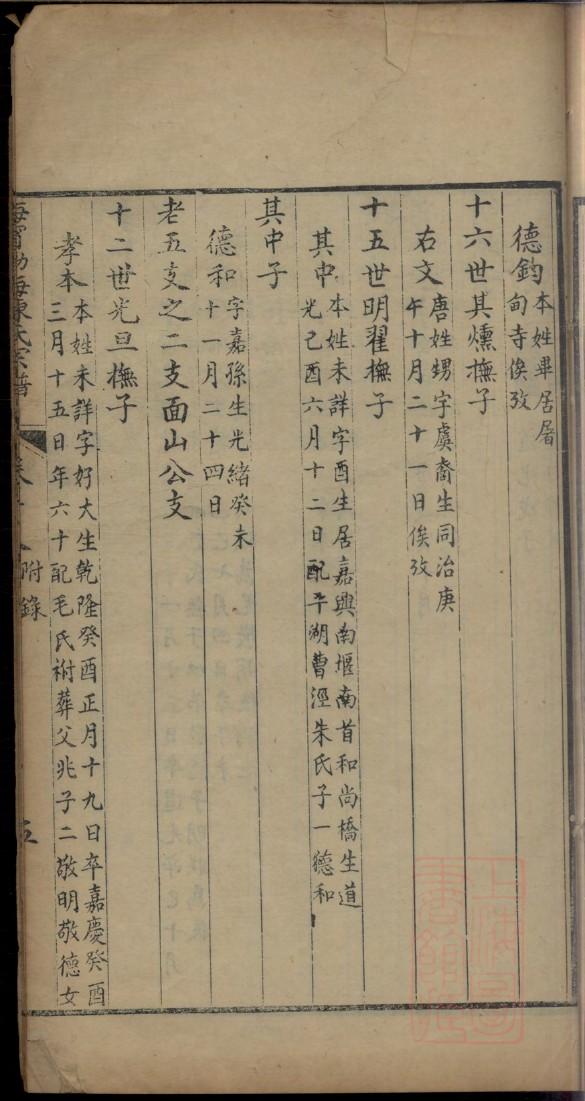 德鈞本姓畢居屠
甸寺俟攷
十六世其燻撫子
右文唐姓甥字虞裔生同治庚
午十月二十一日俟攷
十五世明翟撫子
其中本姓未詳字酉生居嘉興南堰南首和尚橋生道
光己酉六月十二日配平湖曹涇朱氏子一德和
其中子
德和字嘉孫生光緒癸未
十一月二十四日
老五支之二支面山公支
十二世光旦撫子
孝本本姓未詳字好大生乾隆癸酉正月十九日卒嘉慶癸酉
三月十五日年六十配毛氏祔葬父兆子二敬明敬德女
海寧渤海陳氏宗譜
附錄
五